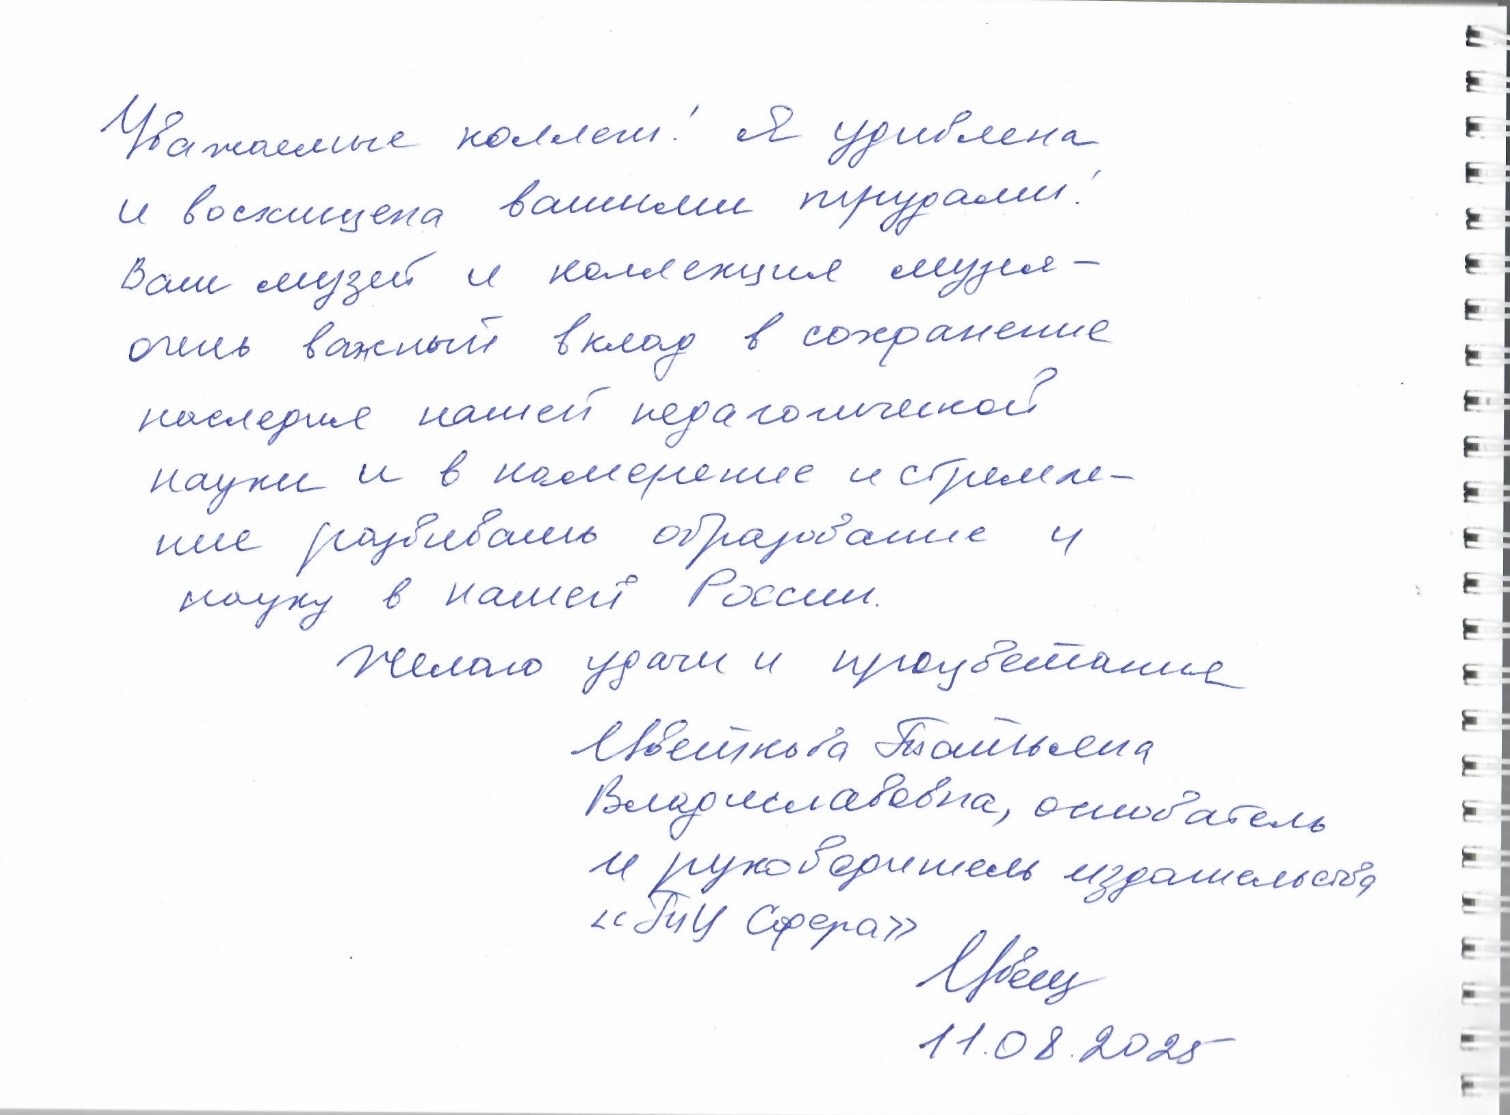 Уважаемые коллеги! Я удивлена
и восхищена вашими трудами!
Ваш музей и коллекция музея –
очень важный вклад в сохранение
наследия нашей педагогической
науки и в намерение и стремле-
ние развивать образование и
науку в нашей России.
Желаю удачи и процветания
Цветкова Татьяна
Владиславовна, основатель
и руководитель издательства
«ТЦ Сфера»
11.08.2025